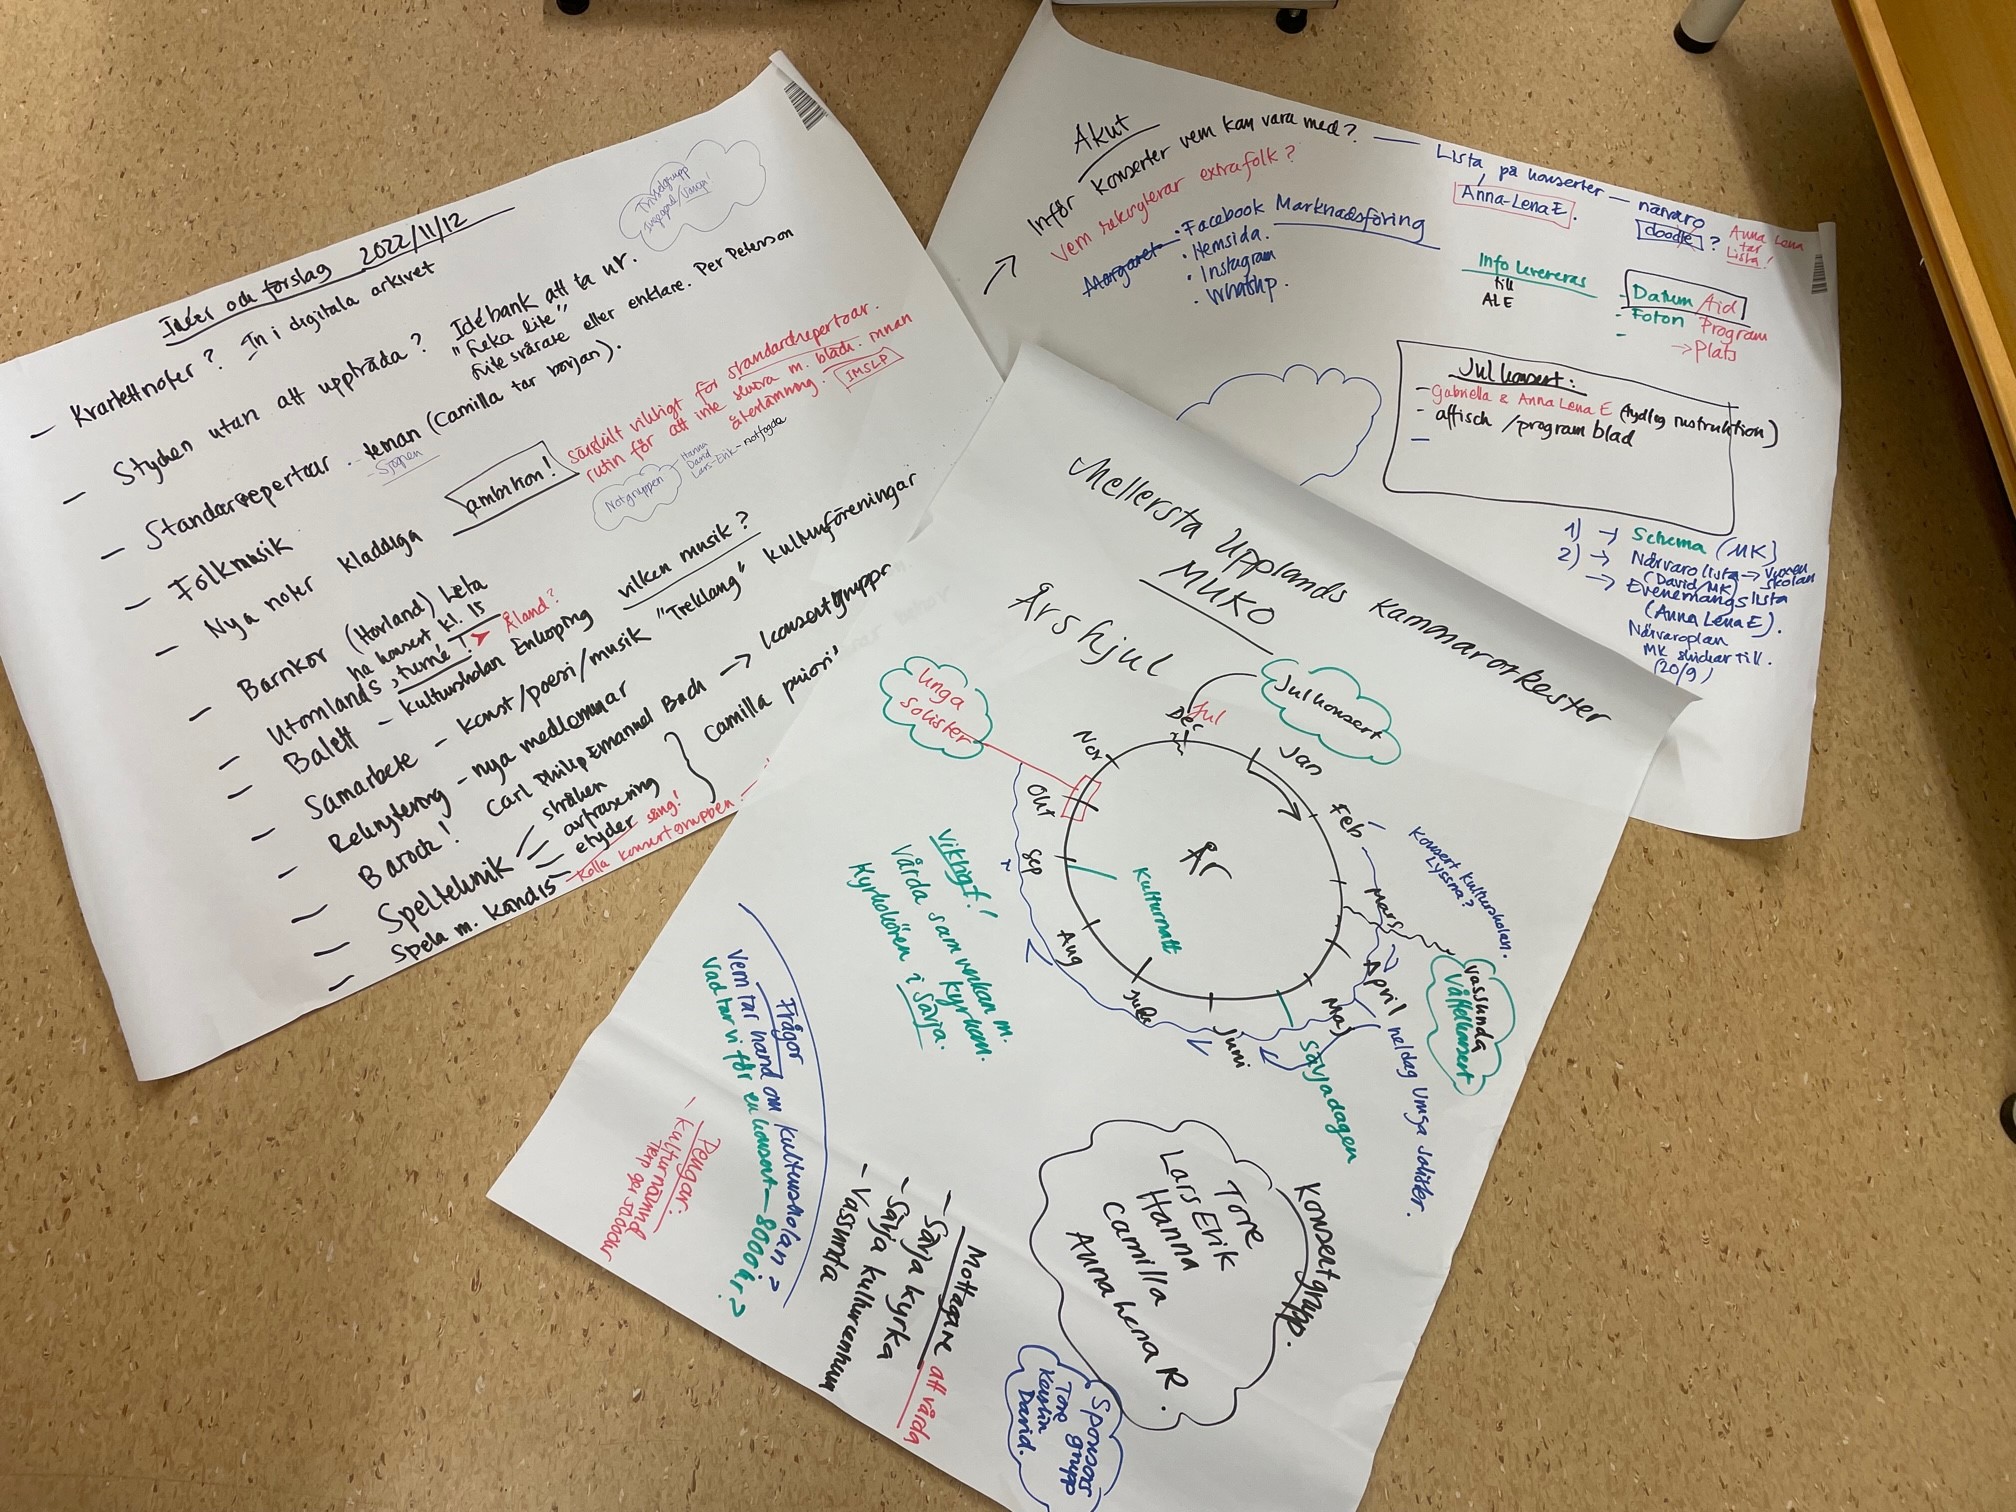 Idéer och förslag 2022/11/12
Trivselgrupp
- Kvartettnoter? In i digitala arkivet
- Stycken utan att uppträda? Idébank att ta ur.
"Leka lite"
lite svårare eller enklare. Per Peterson
- Standardrepertoar - teman (Camilla tar början).
särskilt viktigt för standardrepertoar.
rutin för att inte slutra m. bläck innan
återlämning. IMSLP
- Folkmusik
ambition!
Notgruppen
Hanna
David
Lars-Erik - notfogde
- Nya noter kladdiga
- Barnkör (Horland) Leta
ha konsert kl. 15
- Utomlands, turné! Åland?
- Balett - kulturskolan Enköping vilken musik?
- Samarbete - konst/poesi/musik "Treklang" kulturföreningar
- Rekrytering - nya medlemmar
- Barock! Carl Philip Emanuel Bach → konsertgruppr
- Spelteknik = stråken
avfrasering
etyder
Camilla priori'
- Spela m. kändis - sång!
kolla konsertgruppen.
Akut
Inför konserter vem kan vara med? — Lista på konserter — närvaro
Anna-Lena E.
doodle?
Anna Lena
tar
Lista!
Vem rekryterar extrafolk?
Marknadsföring
Margaret
· Facebook
· Hemsida.
· Instagram
· Whatsp.
Info levereras
till
ALE
- Datum Aid
- Foton Program
-
→ Plats
Julkonsert:
- Gabriella & Anna Lena E (tydlig instruktion)
- affisch / program blad
-
1) → Schema (MK)
2) → Närvarolista → Vuxen
skolan
(David/MK)
→ Evenemangslista
(Anna Lena E).
Närvaroplan
MK skickar till.
(20/9)
Mellersta Upplands Kammarorkester
MUKO
Årshjul
Unga
solister
Julkonsert
Jul
Dec
Jan
Feb
Mars
April
Maj
Juni
Juli
Aug
Sep
Okt
Nov
År
Kulturnatt
Konsert kulturskolan.
Lyssna?
Vassunda
Våffelkonsert
heldag Unga solister.
Sävjadagen
Viktigt!
Vårda samverkan m.
kyrkan.
Kyrkokören i Sävja.
Frågor
Vem tar hand om kulturskolan?
Vad tar vi för en konsert — 8000 kr?
Pengar:
- kulturnämnd
Konsertgrupp.
Tore
Lars Erik
Hanna
Camilla
Anna Lena R.
- Mottagare att vårda
- Sävja kyrka
- Sävja kulturcentrum
- Vassunda
Sponsorgrupp
Tore
Karlin
David.